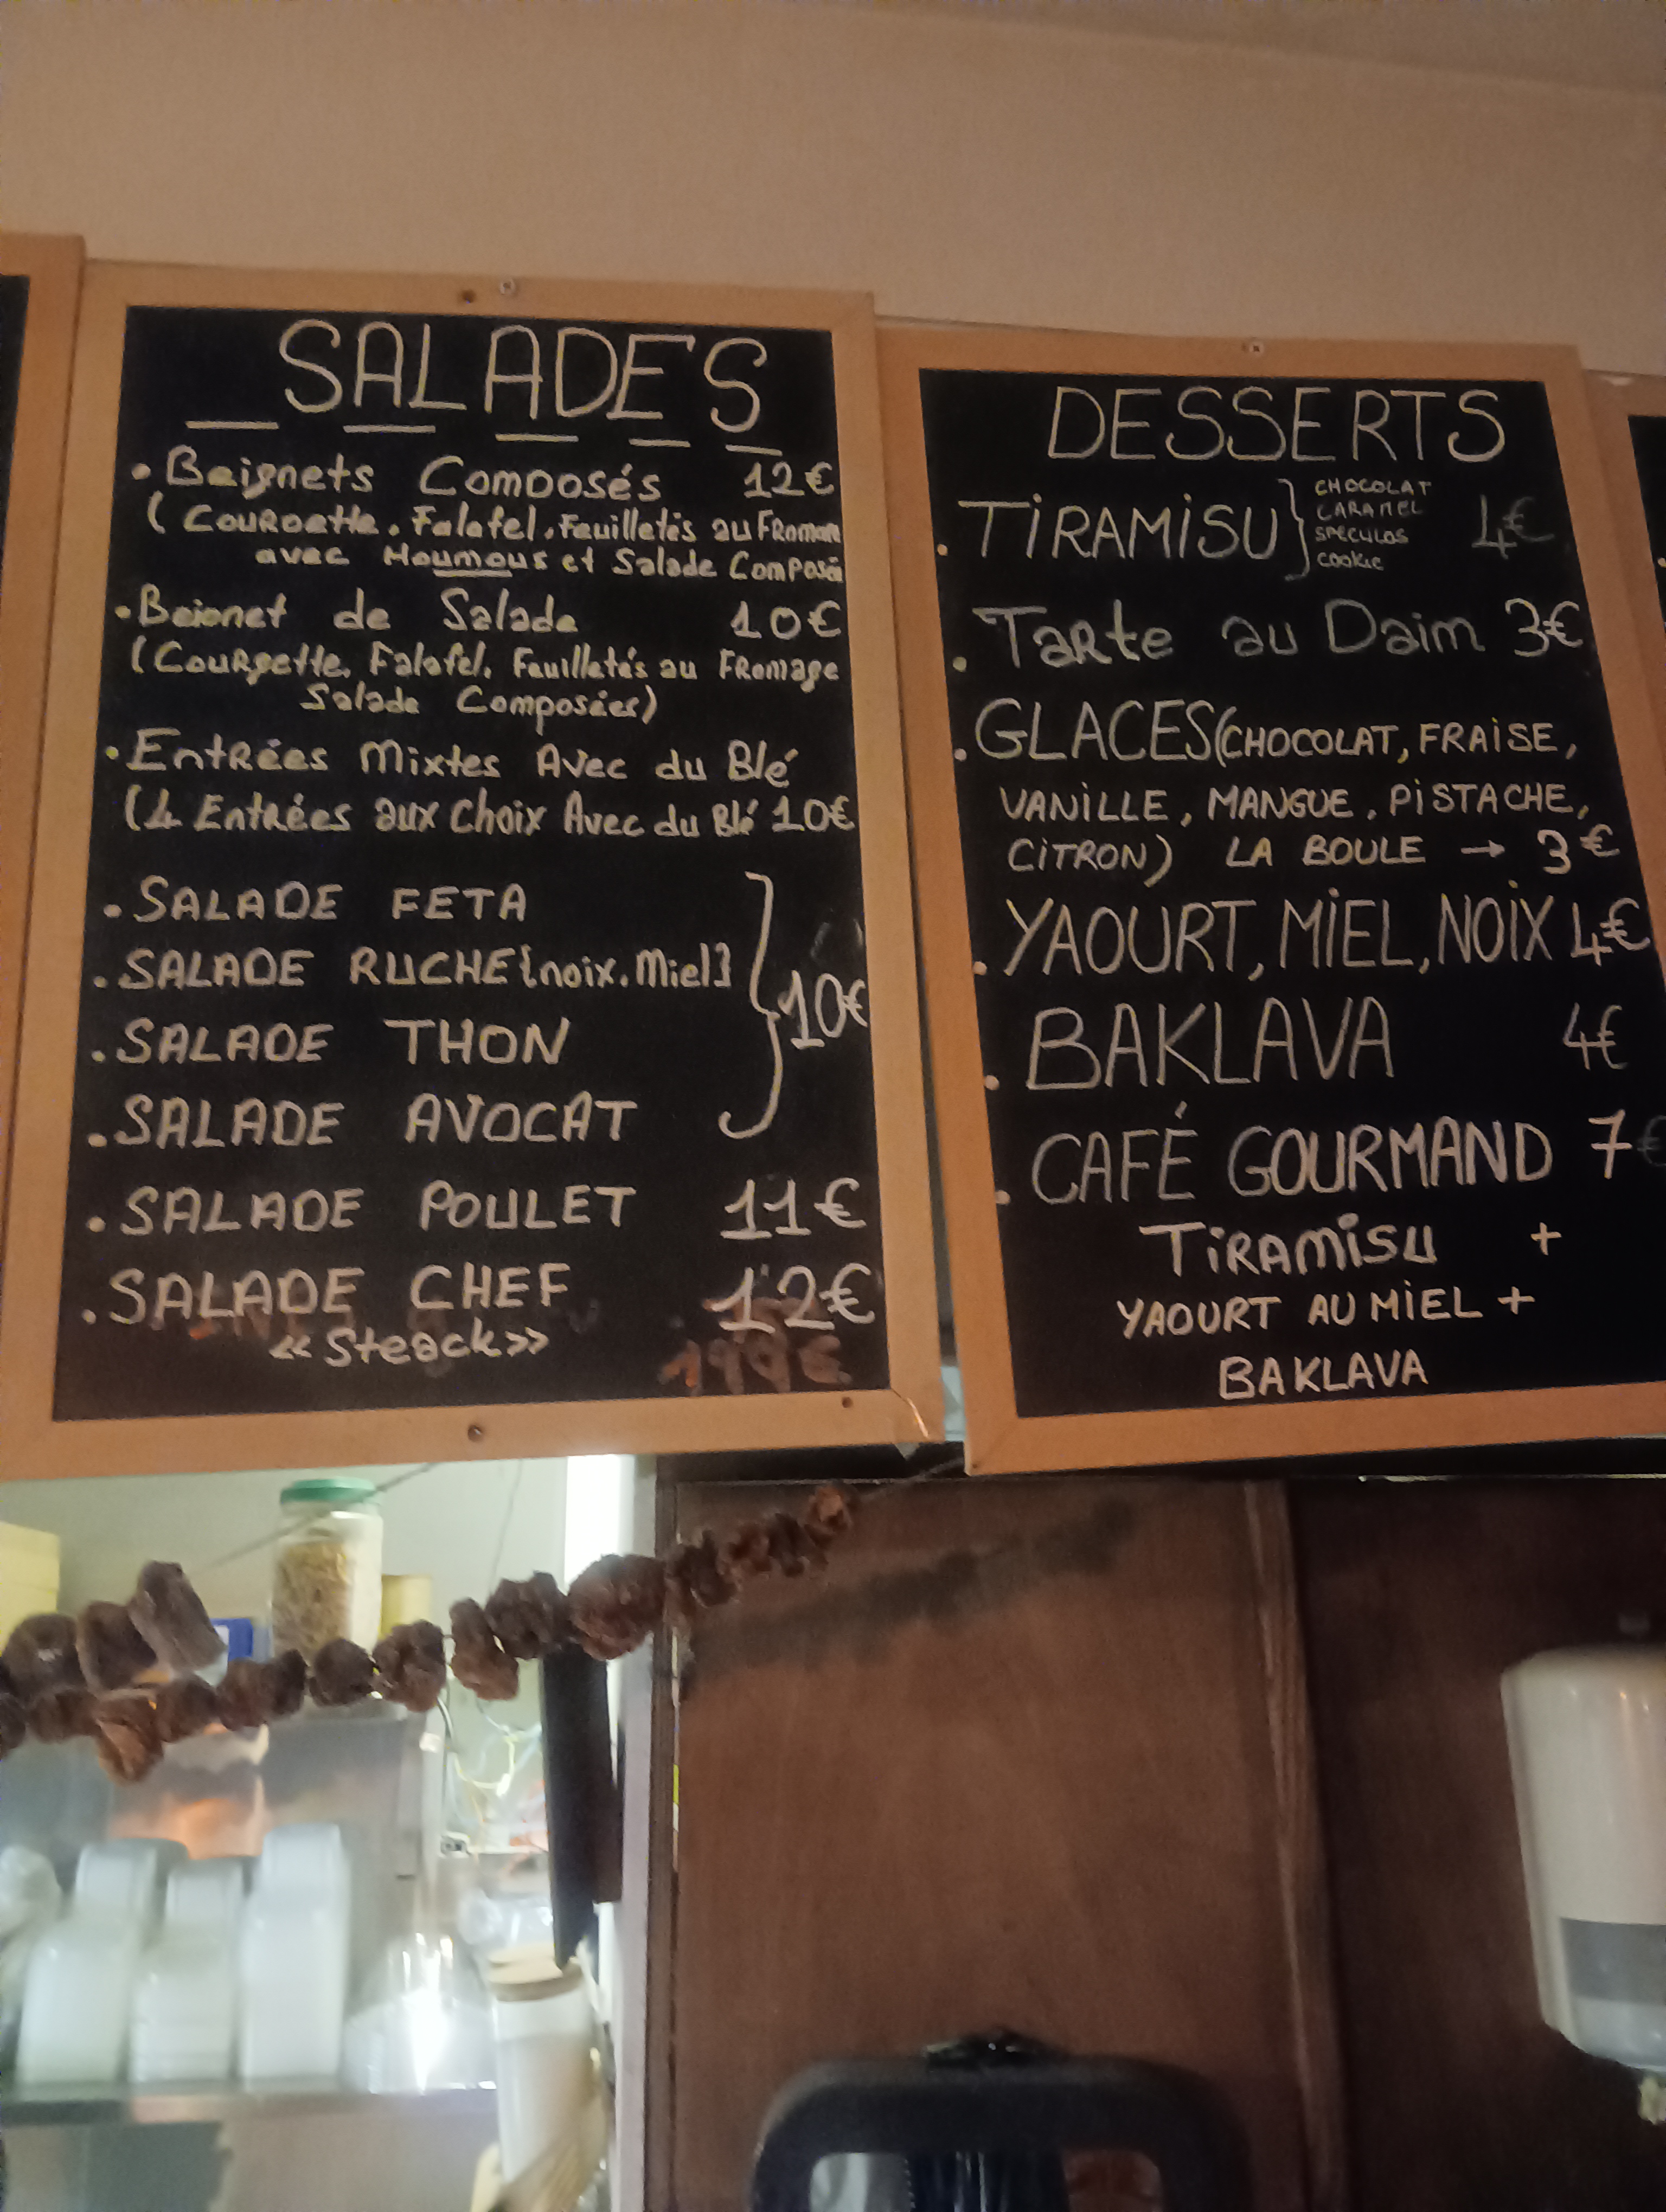 SALADES
• Beignets Composés 12€
(Courgette, Falafel, Feuilletés au Fromage
avec Houmous et Salade Composé
• Beignet de Salade 10€
(Courgette, Falafel, Feuilletés au Fromage
Salade Composées)
• Entrées Mixtes Avec du Blé
(4 Entrées aux Choix Avec du Blé 10€
. SALADE FETA
. SALADE RUCHE {noix, Miel}
. SALADE THON
. SALADE AVOCAT
10€
. SALADE POULET 11€
. SALADE CHEF 12€
«Steack»
DESSERTS
. TIRAMISU } CHOCOLAT
CARAMEL
SPECULOS
COOKIE
4€
. Tarte au Daim 3€
. GLACES (CHOCOLAT, FRAISE,
VANILLE, MANGUE, PISTACHE,
CITRON) LA BOULE → 3€
. YAOURT, MIEL, NOIX 4€
. BAKLAVA 4€
. CAFÉ GOURMAND 7€
TIRAMISU +
YAOURT AU MIEL +
BAKLAVA